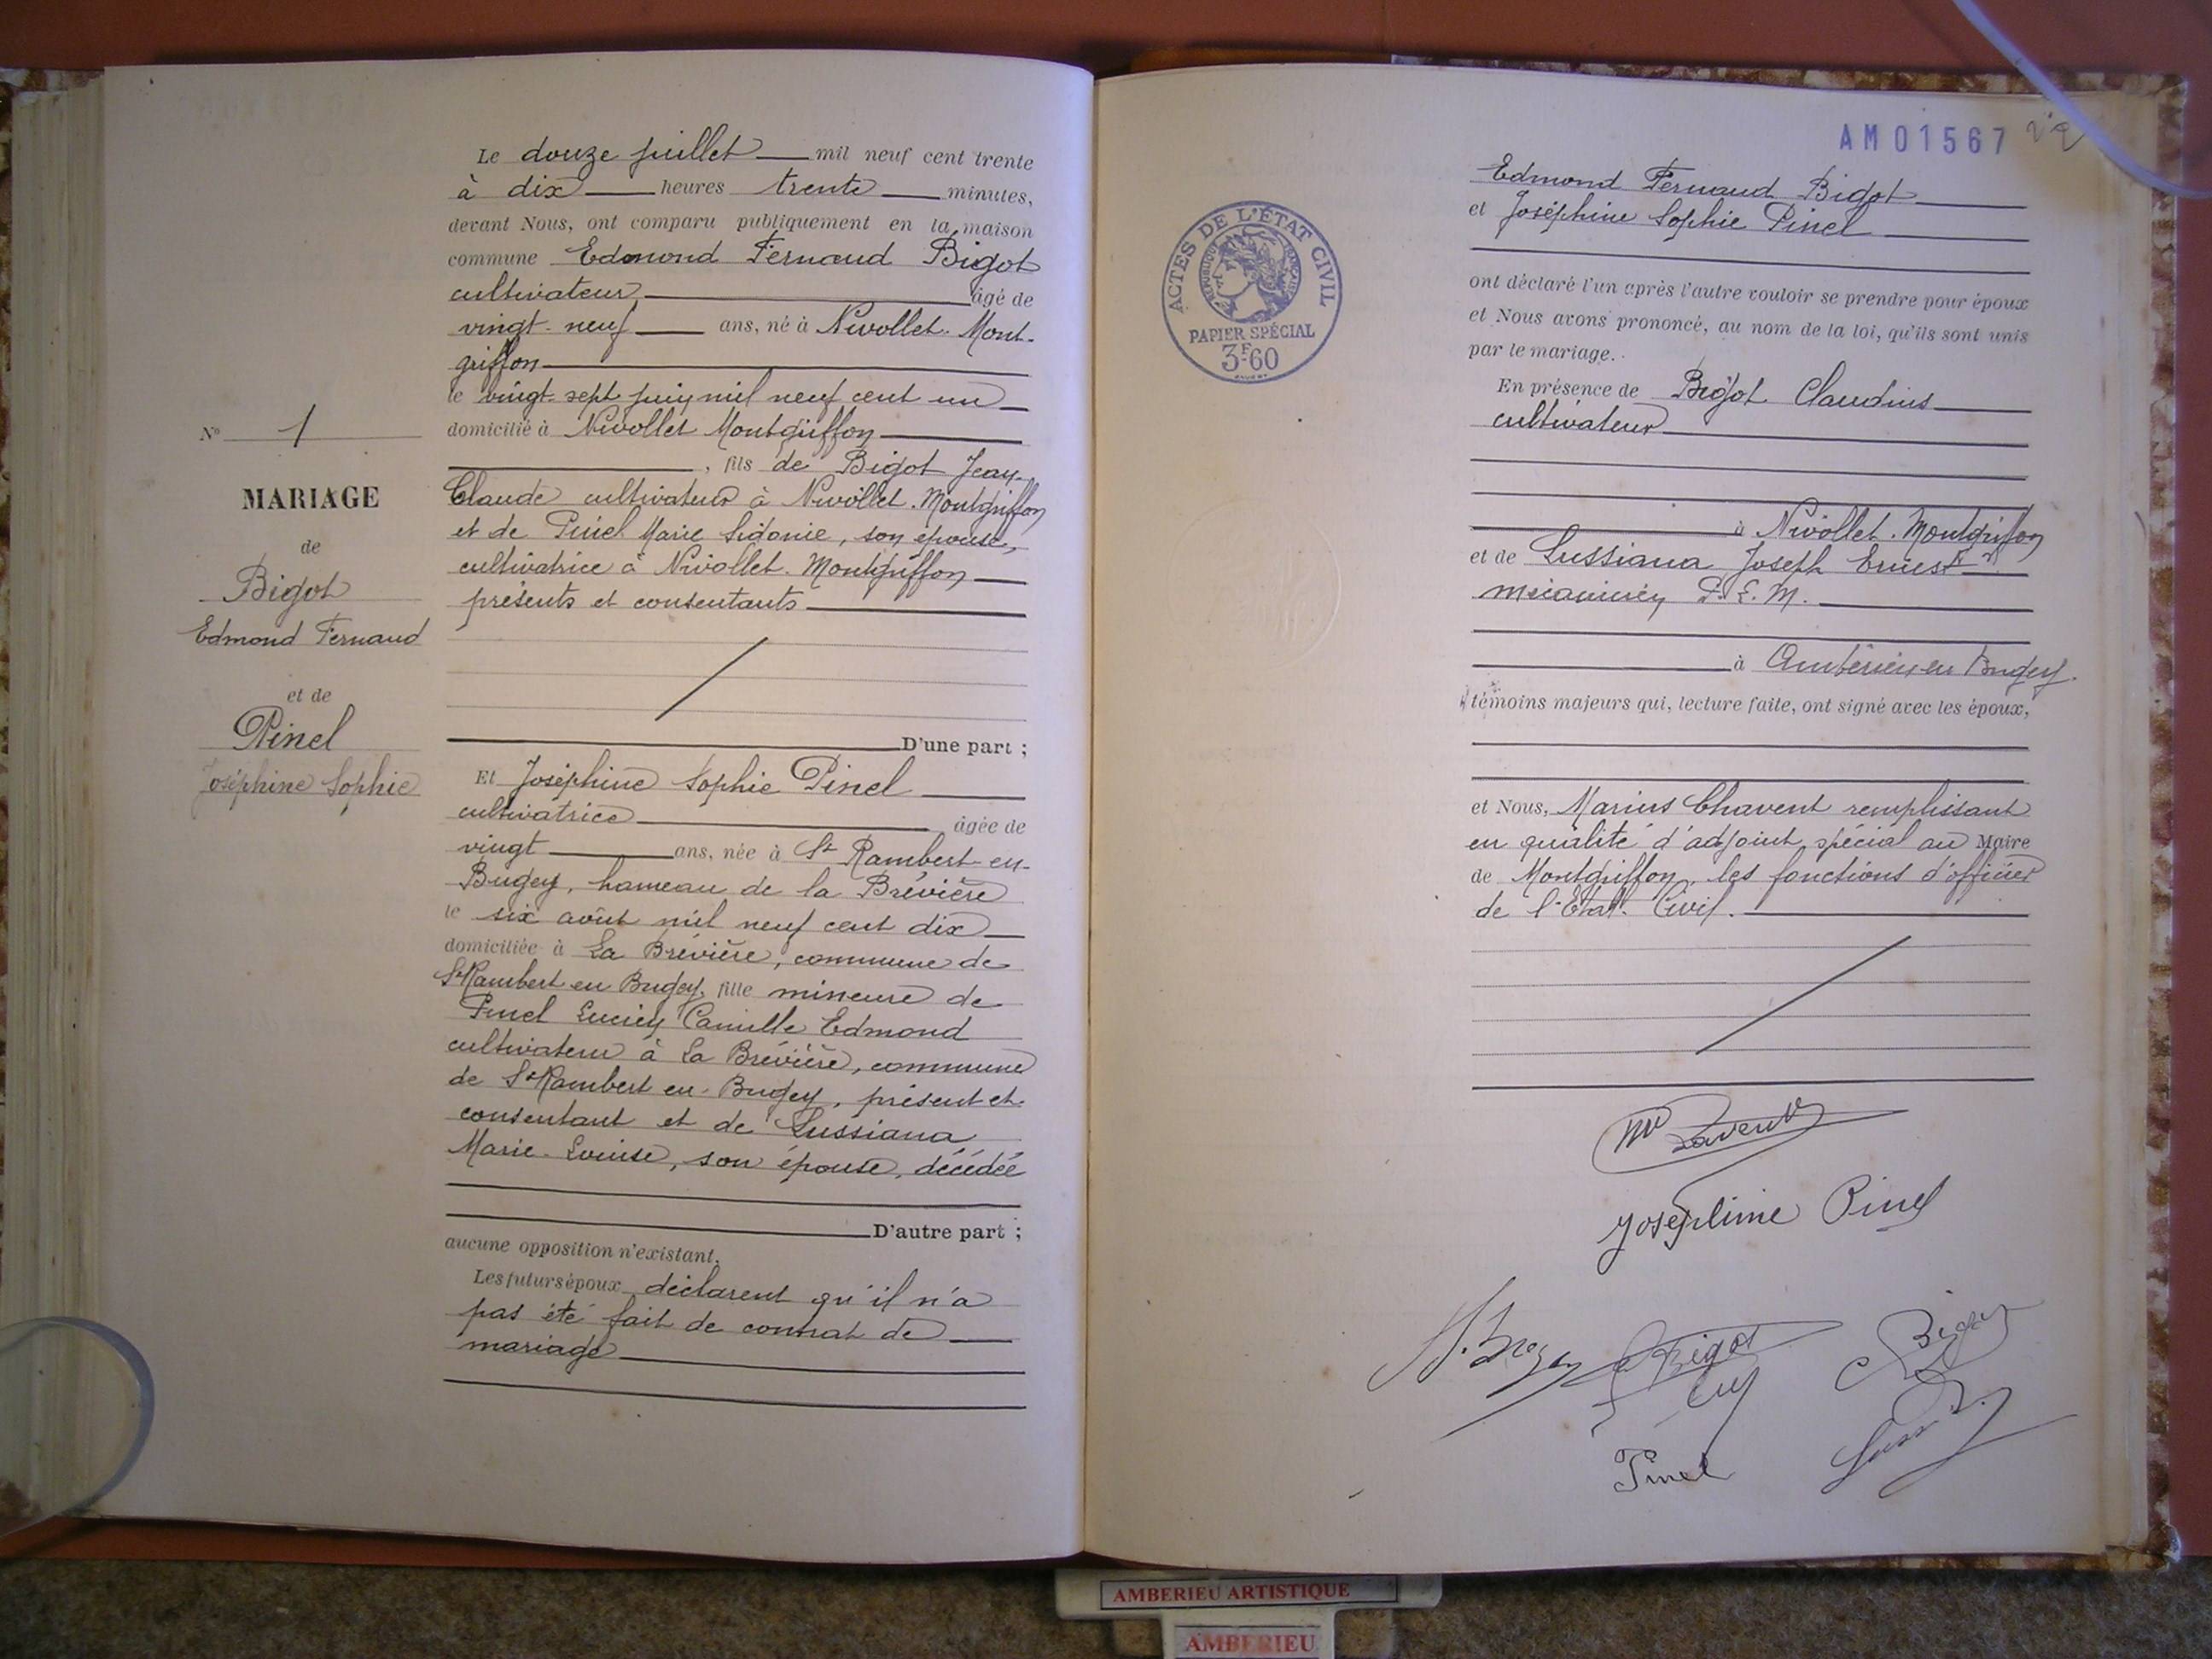 Le douze juillet mil neuf cent trente
à dix heures trente minutes,
devant Nous, ont comparu publiquement en la maison
commune Edmond Fernand Bigot
cultivateur âgé de
vingt-neuf ans, né à Nivollet-Mont-
griffon
le vingt-sept juin mil neuf cent un
domicilié à Nivollet Montgriffon
, fils de Bigot Jean-
Claude cultivateur à Nivollet-Montgriffon
et de Pinel Marie Sidonie, son épouse,
cultivatrice à Nivollet-Montgriffon
présents et consentants
D'une part ;
Et Joséphine Sophie Pinel
cultivatrice âgée de
vingt ans, née à St Rambert-en-
Bugey, hameau de la Brévière
le six août mil neuf cent dix
domiciliée à La Brévière, commune de
St Rambert en Bugey, fille mineure de
Pinel Lucien Camille Edmond
cultivateur à La Brévière, commune
de St Rambert en-Bugey, présent et
consentant et de Lussiana
Marie-Louise, son épouse, décédée
D'autre part ;
aucune opposition n'existant.
Les futurs époux déclarent qu'il n'a
pas été fait de contrat de
mariage
N° 1
MARIAGE
de
Bigot
Edmond Fernand
et de
Pinel
Joséphine Sophie
AM01567
ACTES DE L'ÉTAT CIVIL
RÉPUBLIQUE FRANÇAISE
PAPIER SPÉCIAL
3F60
Edmond Fernand Bigot
et Joséphine Sophie Pinel
ont déclaré l'un après l'autre vouloir se prendre pour époux
et Nous avons prononcé, au nom de la loi, qu'ils sont unis
par le mariage.
En présence de Bigot Claudius
cultivateur
à Nivollet-Montgriffon
et de Lussiana Joseph Ernest
mécanicien P.L.M.
à Ambérieu en Bugey.
témoins majeurs qui, lecture faite, ont signé avec les époux,
et Nous, Marius Chavent remplissant
en qualité d'adjoint spécial au Maire
de Montgriffon, les fonctions d'officier
de l'Etat-Civil.
Joséphine Pinel
Bigot
Pinel
AMBERIEU ARTISTIQUE
AMBERIEU